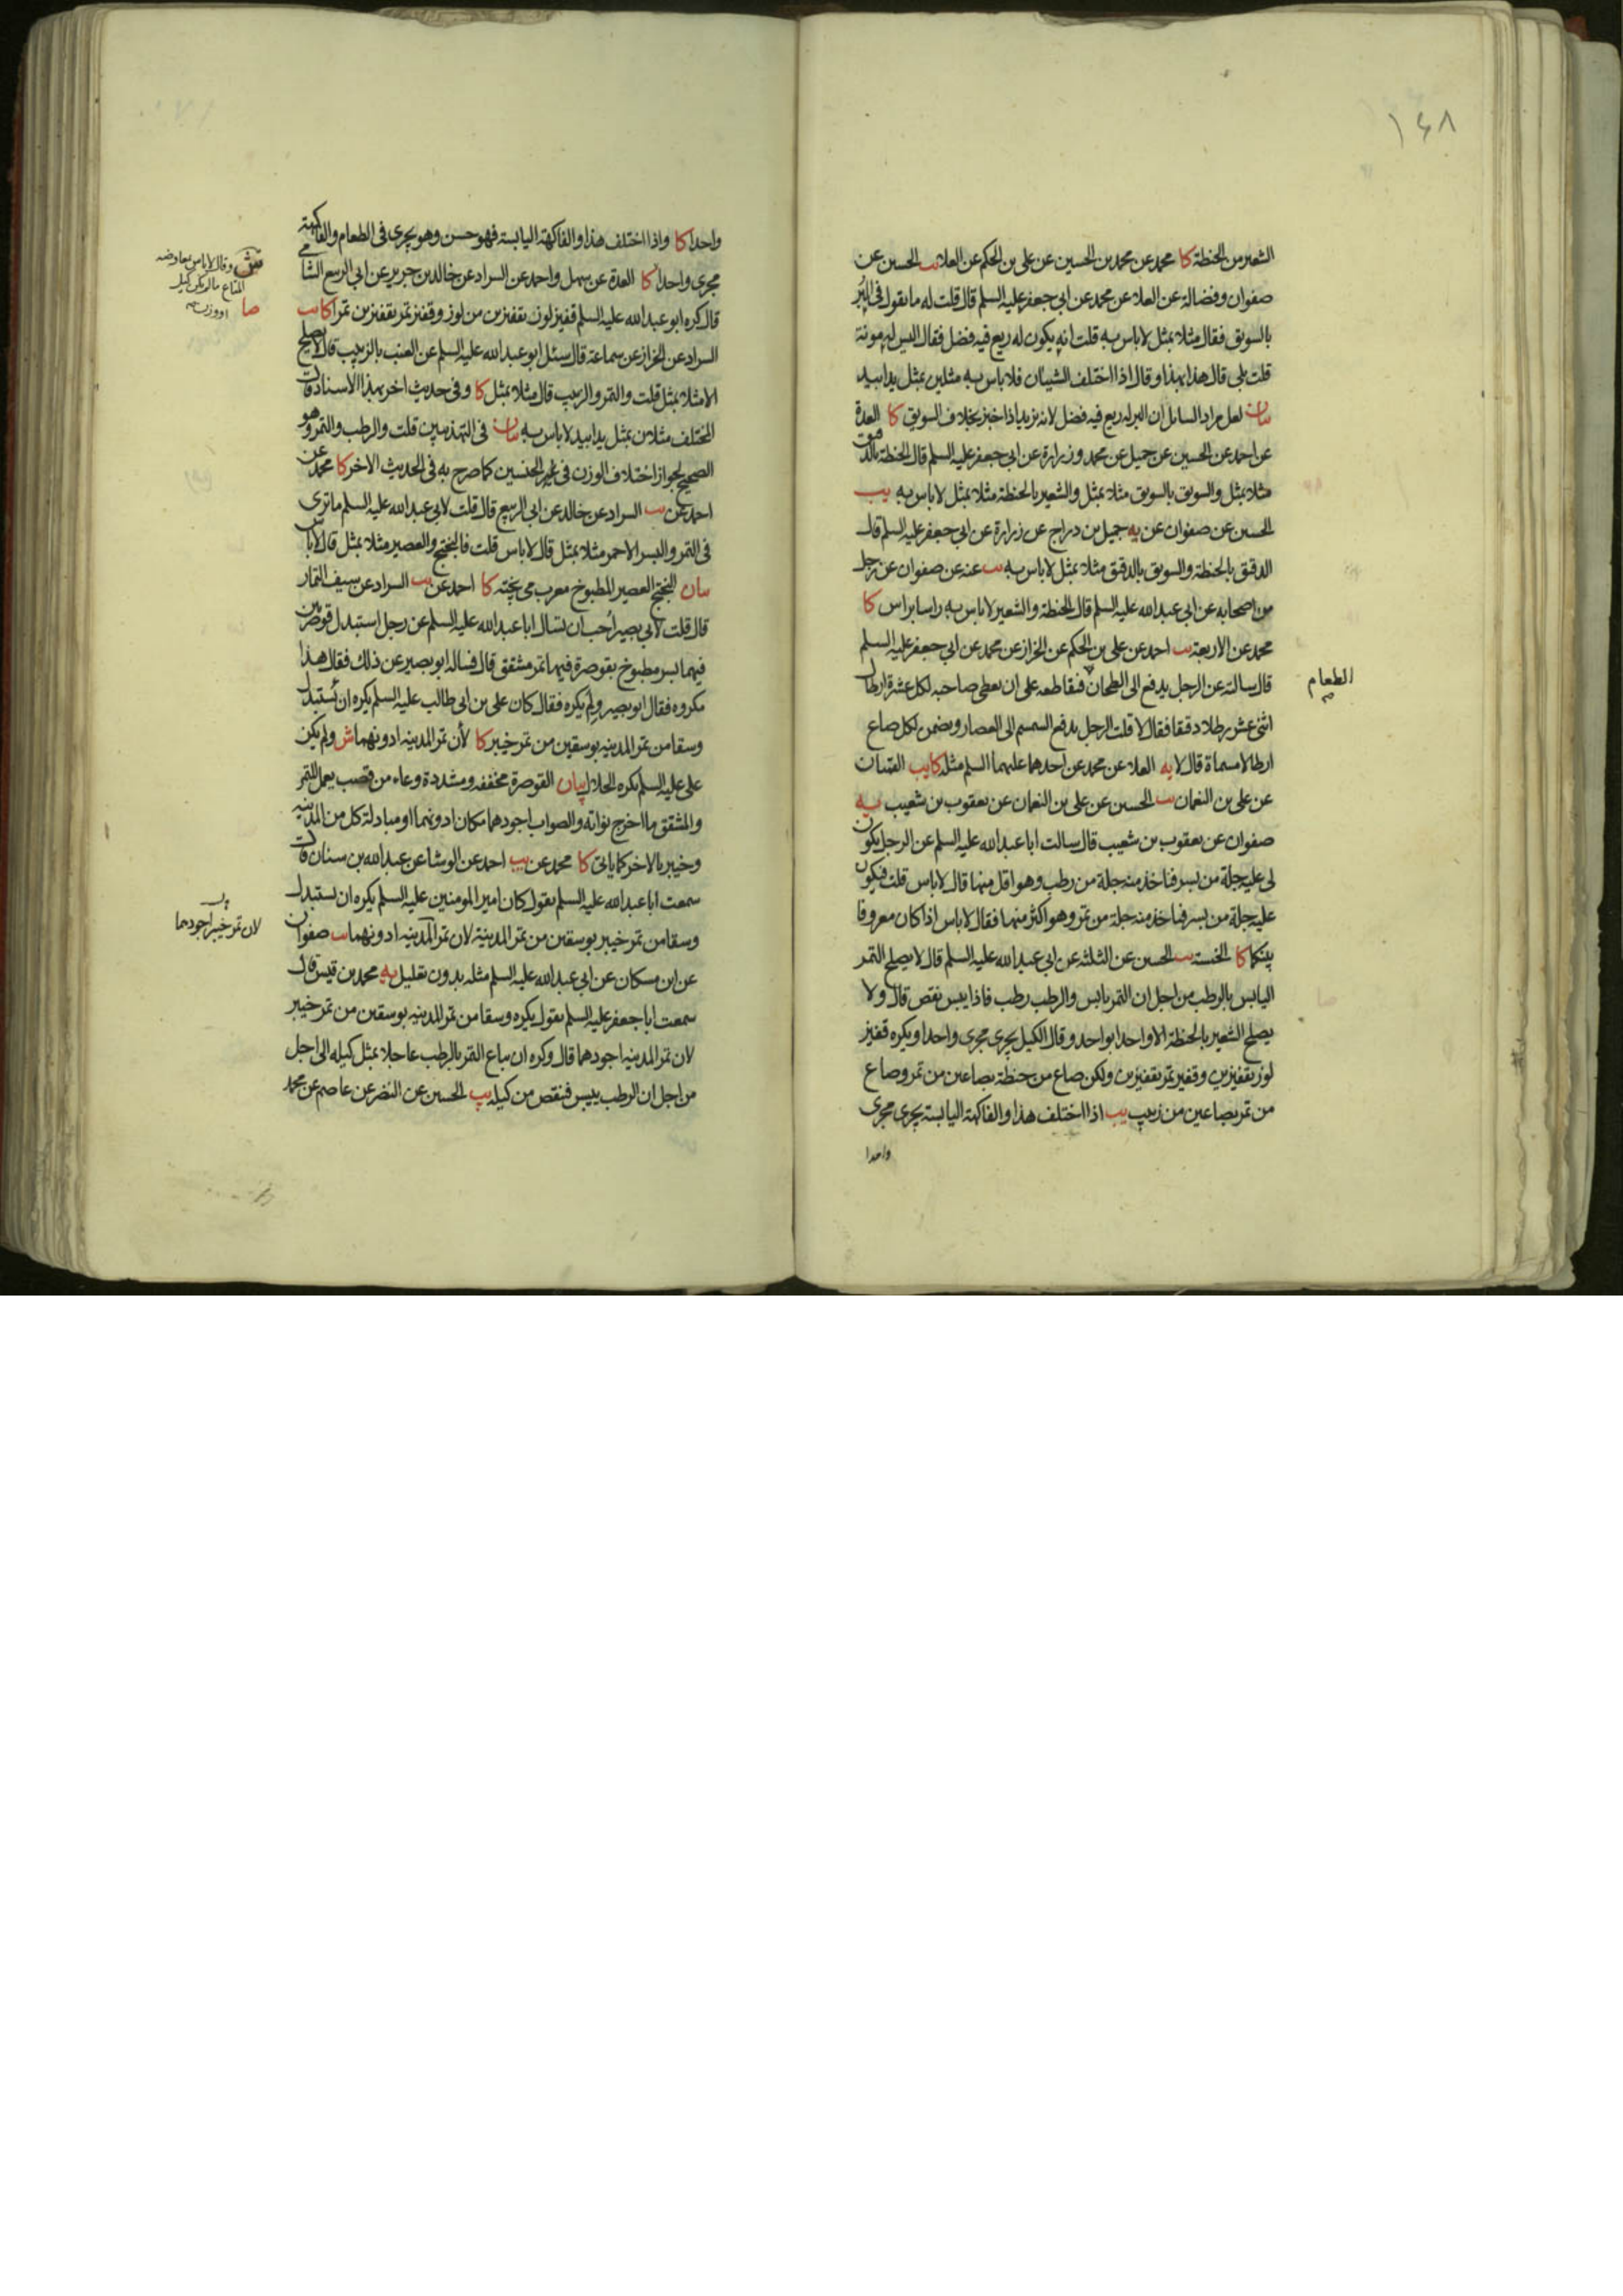 ١٤٨
الشعير من الحنطة كا محمد عن محمد بن الحسين عن علي بن الحكم عن العلا يب الحسين عن
صفوان وفضالة عن العلا عن محمد عن ابي جعفر عليه السلم قال قلت له ما تقول في البُر
بالسويق فقال مثلا بمثل لا باس به قلت انه يكون له ريع فيه فضل فقال اليس له مونة
قلت بلى قال هذا بهذا وقال اذا اختلف الشيئان فلا باس به مثلين بمثل يدا بيد
بيان لعل مراد السائل ان البر له ريع فيه فضل لانه يزيد اذا خبز بخلاف السويق كا العدة
عن احمد عن الحسين عن جميل عن محمد وزرارة عن ابي جعفر عليه السلم قال الحنطة بالدقيق
مثلا بمثل والسويق بالسويق مثلا بمثل والشعير بالحنطة مثلا بمثل لا باس به يب
الحسين عن صفوان عن يه جميل بن دراج عن زرارة عن ابي جعفر عليه السلم قال
الدقيق بالحنطة والسويق بالدقيق مثلا بمثل لا باس به يب عنه عن صفوان عن رجل
من اصحابه عن ابي عبد الله عليه السلم قال الحنطة والشعير لا باس به راسا براس كا
محمد عن الاربعة يب احمد عن علي بن الحكم عن الخراز عن محمد عن ابي جعفر عليه السلم
قال سالته عن الرجل يدفع الى الطحان فيقاطعه على ان يعطي صاحبه لكل عشرة ارطال
الطعام
اثني عشر رطلا دقيقا فقال لا قلت الرجل يدفع السمسم الى العصار ويضمن لكل صاع
ارطالا مسماة قال لا يه العلا عن محمد عن احدهما عليهما السلم مثله كا يب القميان
عن علي بن النعمان يب الحسين عن علي بن النعمان عن يعقوب بن شعيب يه
صفوان عن يعقوب بن شعيب قال سالت ابا عبد الله عليه السلم عن الرجل يكون
لي عليه جلة من بسر فناخذ منه جلة من رطب وهو اقل منها قال لا باس قلت فيكون
عليه جلة من بسر فناخذ منه جلة من تمر وهو اكثر منها فقال لا باس اذا كان معروفا
بينكما كا الخمسة يب الحسين عن الثلثه عن ابي عبد الله عليه السلم قال لا يصلح التمر
اليابس بالرطب من اجل ان التمر يابس والرطب رطب فاذا يبس نقص قال ولا
يصلح الشعير بالحنطة الا واحدا بواحد وقال الكيل يجري مجرى واحدا ويكره قفيز
لوز بقفيزين وقفيز تمر بقفيزين ولكن صاع من حنطة بصاعين من تمر وصاع
من تمر بصاعين من زبيب يب اذا اختلف هذا والفاكهة اليابسة يجري مجرى
واحدا
واحدا كا واذا اختلف هذا والفاكهة اليابسة فهو حسن وهو يجري في الطعام والفاكهة
مجرى واحدا كا العدة عن سهل واحمد عن السراد عن خالد بن جرير عن ابي الربيع الشامي
قال كره ابو عبد الله عليه السلم قفيز لوز بقفيزين من لوز وقفيز تمر بقفيزين تمرا كا يب
السراد عن الخراز عن سماعة قال سئل ابو عبد الله عليه السلم عن العنب بالزبيب قال لا يصلح
الا مثلا بمثل قلت والتمر والزبيب قال مثلا بمثل كا وفي حديث اخر بهذا الاسناد قال
المختلف مثلان بمثل يدا بيد لا باس به بيان في التهذيبين قلت والرطب والتمر وهو
الصحيح لجواز اختلاف الوزن في غير الجنسين كما صرح به في الحديث الاخر كا محمد عن
احمد عن يب السراد عن خالد عن ابي الربيع قال قلت لابي عبد الله عليه السلم ما ترى
في التمر والبسر الاحمر مثلا بمثل قال لا باس قلت فالبختج والعصير مثلا بمثل قال لا باس
بيان البختج العصير المطبوخ معرب مي پخته كا احمد عن يب السراد عن سيف التمار
قال قلت لابي بصير أحب ان تسال ابا عبد الله عليه السلم عن رجل استبدل قوصرتين
فيهما بسر مطبوخ بقوصرة فيها تمر مشقق قال فساله ابو بصير عن ذلك فقال هذا
مكروه فقال ابو بصير ولم يكره فقال كان علي بن ابي طالب عليه السلم يكره ان يستبدل
وسقا من تمر المدينه بوسقين من تمر خيبر كا لأن تمر المدينه ادونهما ش ولم يكن
علي عليه السلم يكره الحلال بيان القوصرة مخففه ومشددة وعاء من قصب يعمل للتمر
والمشقق ما اخرج نواته والصواب اجودهما مكان ادونهما او مبادلة كل من المدينه
وخيبر بالاخر كما ياتي كا محمد عن يب احمد عن الوشا عن عبد الله بن سنان قال
سمعت ابا عبد الله عليه السلم يقول كان امير المومنين عليه السلم يكره ان يستبدل
وسقا من تمر خيبر بوسقين من تمر المدينة لان تمر المدينه ادونهما يب صفوان
عن ابن مسكان عن ابي عبد الله عليه السلم مثله بدون تعليل يه محمد بن قيس قال
سمعت ابا جعفر عليه السلم يقول يكره وسقا من تمر المدينه بوسقين من تمر خيبر
لان تمر المدينه اجودهما قال وكره ان يباع التمر بالرطب عاجلا بمثل كيله الى اجل
من اجل ان الرطب ييبس فينقص من كيله يب الحسين عن النضر عن عاصم عن محمد
وقال لا باس بمعاوضه
المتاع مالم يكن كيل
او وزن صح
صا
يب
لان تمر خيبر اجودهما